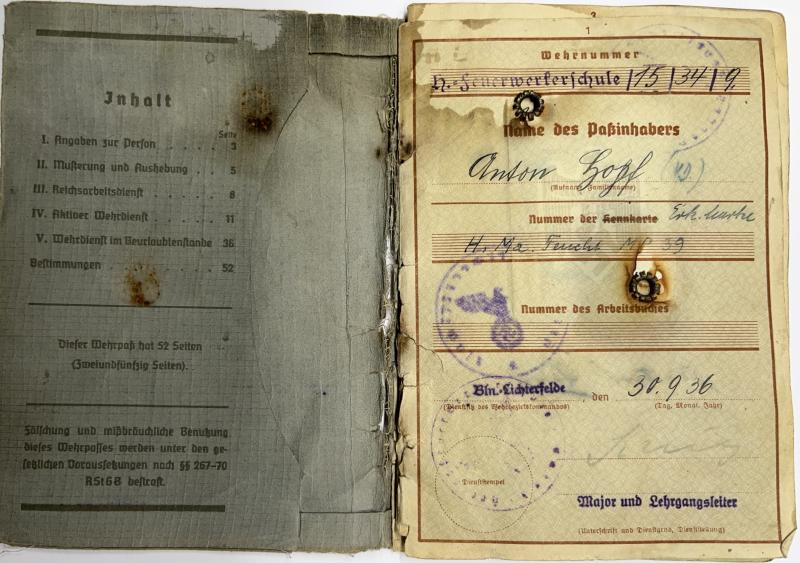 Inhalt
Seite
I. Angaben zur Person . . . . . 3
II. Musterung und Aushebung . . 5
III. Reichsarbeitsdienst . . . . . . 8
IV. Aktiver Wehrdienst . . . . . . 11
V. Wehrdienst im Beurlaubtenstande 36
Bestimmungen . . . . . . . . 52
Dieser Wehrpaß hat 52 Seiten
(Zweiundfünfzig Seiten).
Fälschung und mißbräuchliche Benutzung
dieses Wehrpasses werden unter den ge-
setzlichen Voraussetzungen nach §§ 267-70
RStGB bestraft.
1
Wehrnummer
H.-Feuerwerkerschule/15/34/9.
Name des Paßinhabers
Anton Hopf
(Rufname, Familienname)
Nummer der Kennkarte Erk. Marke
H. Ma. Feucht 39
Nummer des Arbeitsbuches
Bln.-Lichterfelde den 30.9.36
(Dienstsitz des Wehrbezirkskommandos) (Tag, Monat, Jahr)
Dienststempel
Major und Lehrgangsleiter
(Unterschrift und Dienstgrad, Dienststellung)